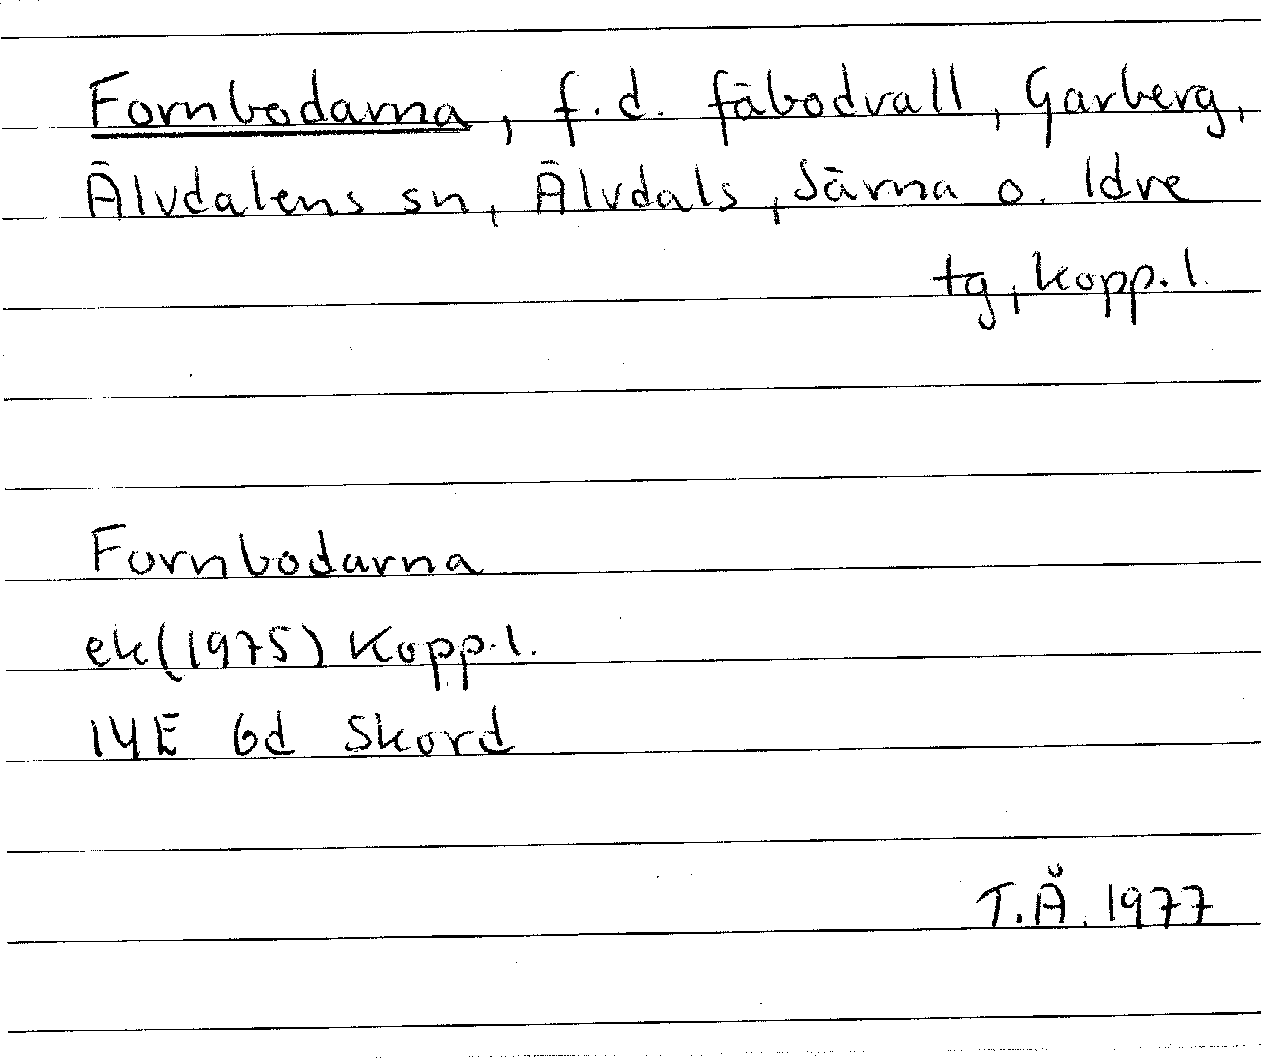 Fornbodarna, f.d. fäbodvall, Garberg,
Älvdalens sn, Älvdals, Särna o. Idre
tg, Kopp.l.
Fornbodarna
ek(1975) Kopp.l.
14E 6d Skord
T.Å. 1977